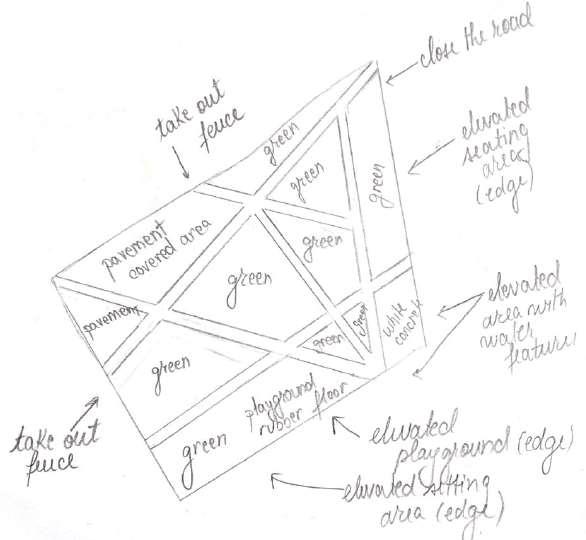 close the road
take out
fence
elevated
seating
area
(edge)
green
green
green
pavement
covered area
green
green
pavement
green
green
green
white
concrete
elevated
area with
water
features
playground
rubber floor
green
take out
fence
elevated
playground (edge)
elevated sitting
area (edge)